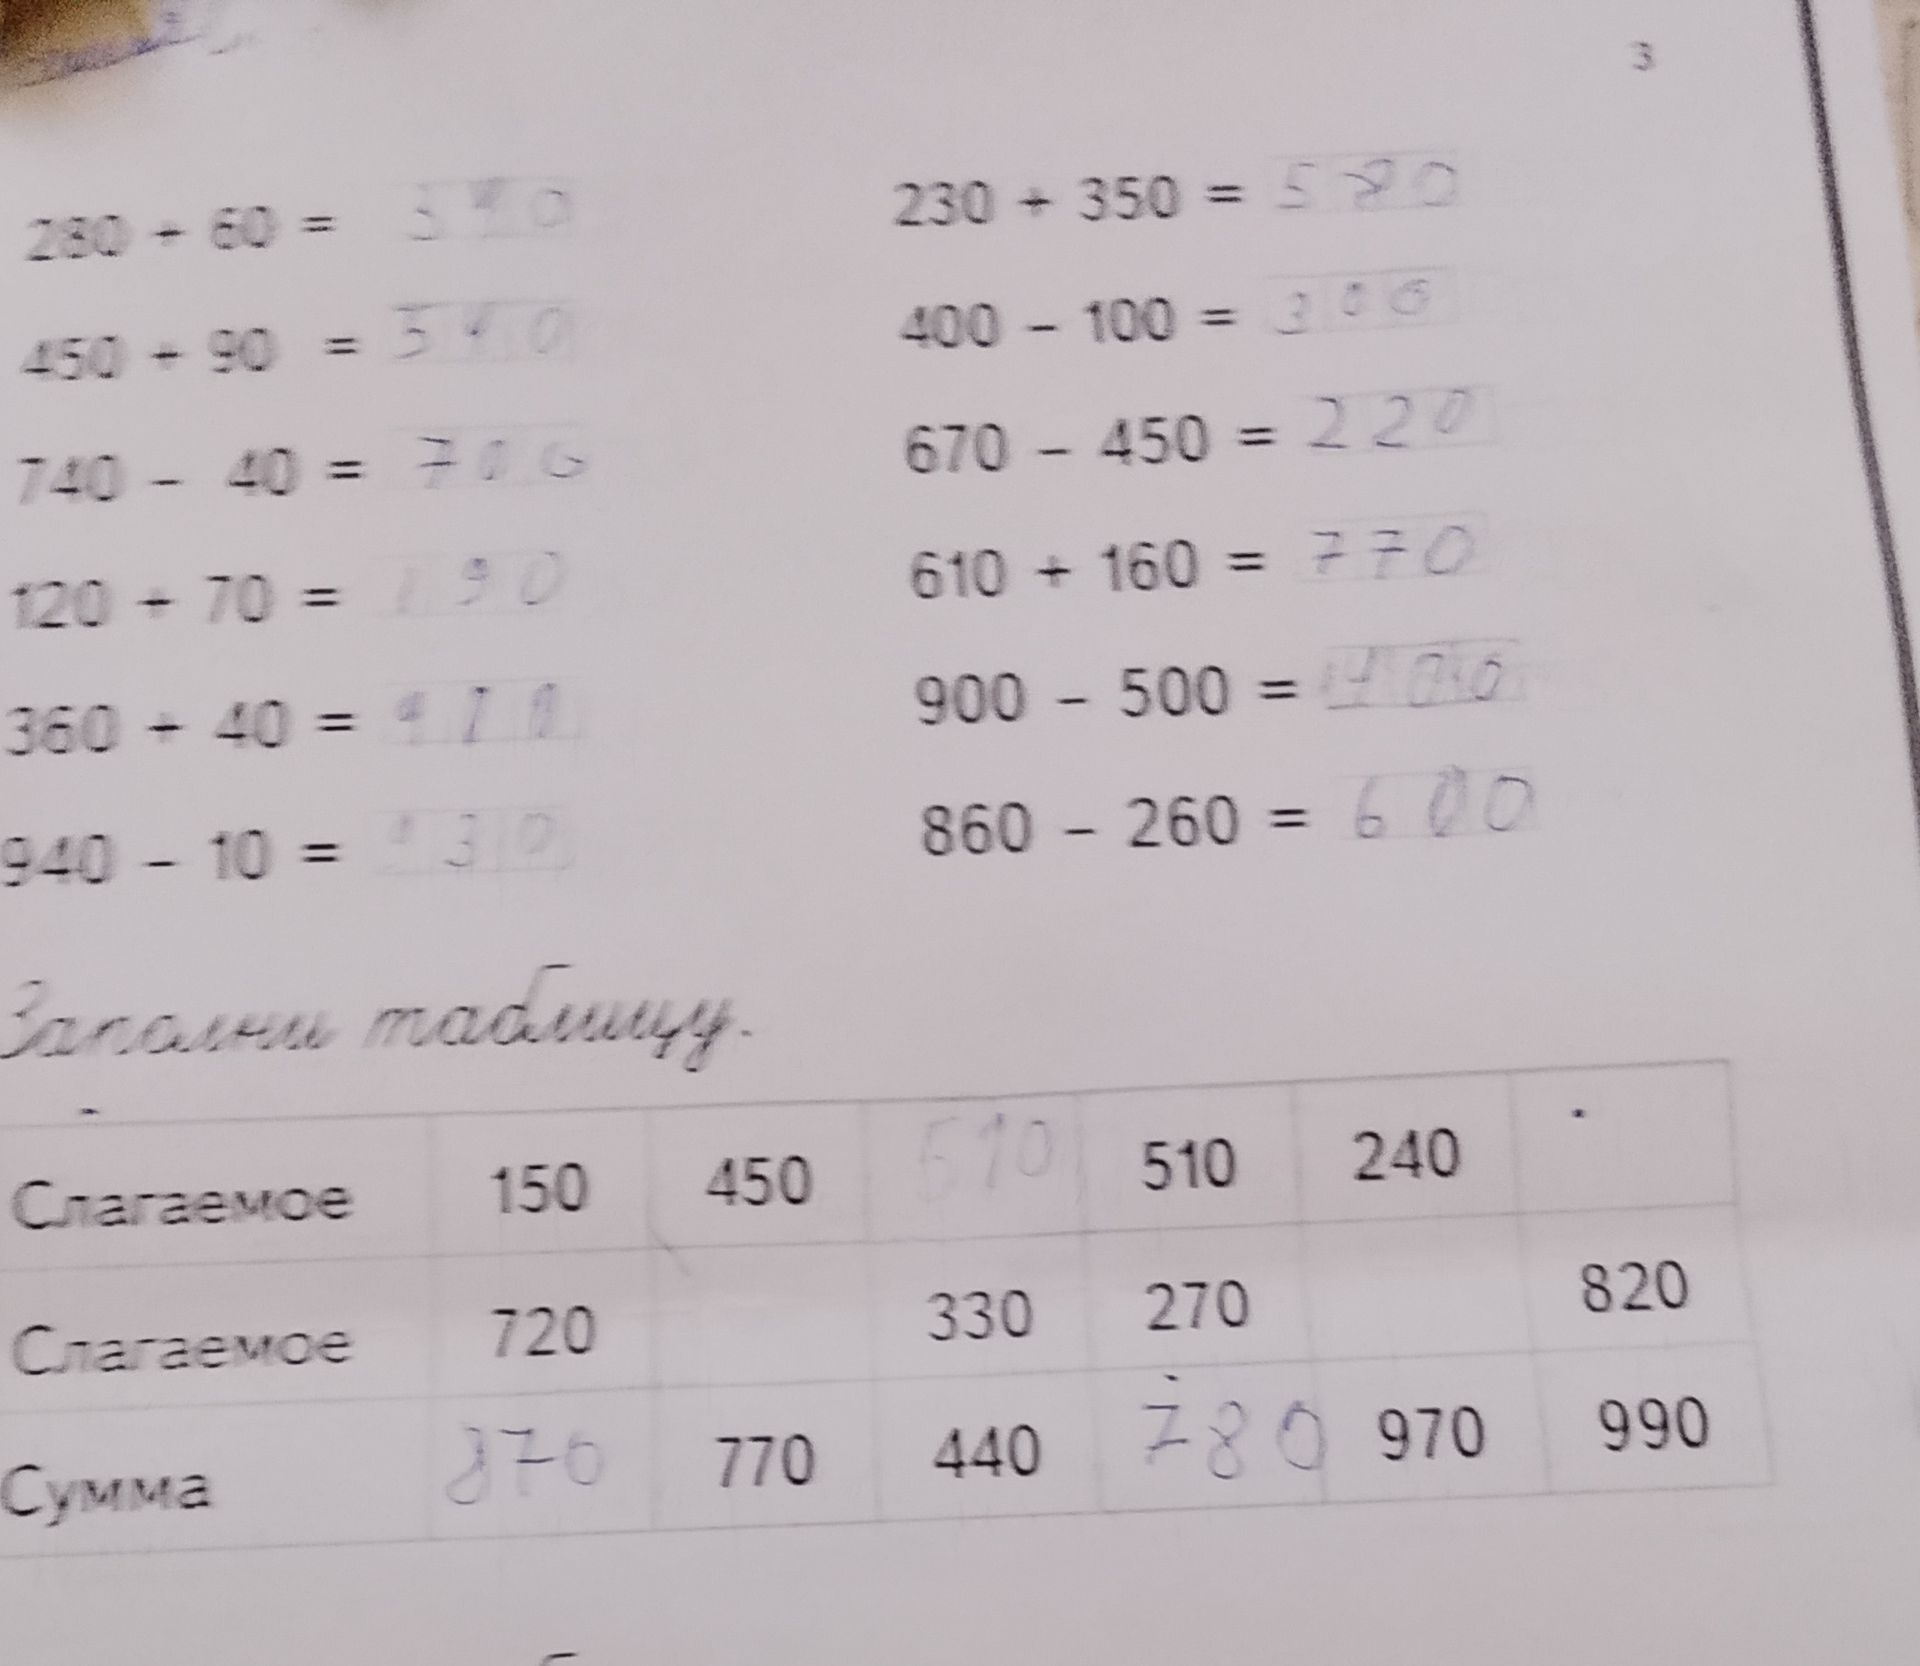 3
280 + 60 = 340 230 + 350 = 580
450 + 90 = 540 400 - 100 = 300
740 - 40 = 700 670 - 450 = 220
120 + 70 = 190 610 + 160 = 770
360 + 40 = 900 - 500 = 400
940 - 10 = 860 - 260 = 600
Заполни таблицу.
Слагаемое 150 450 510 240
Слагаемое 720 330 270 820
Сумма 870 770 440 780 970 990